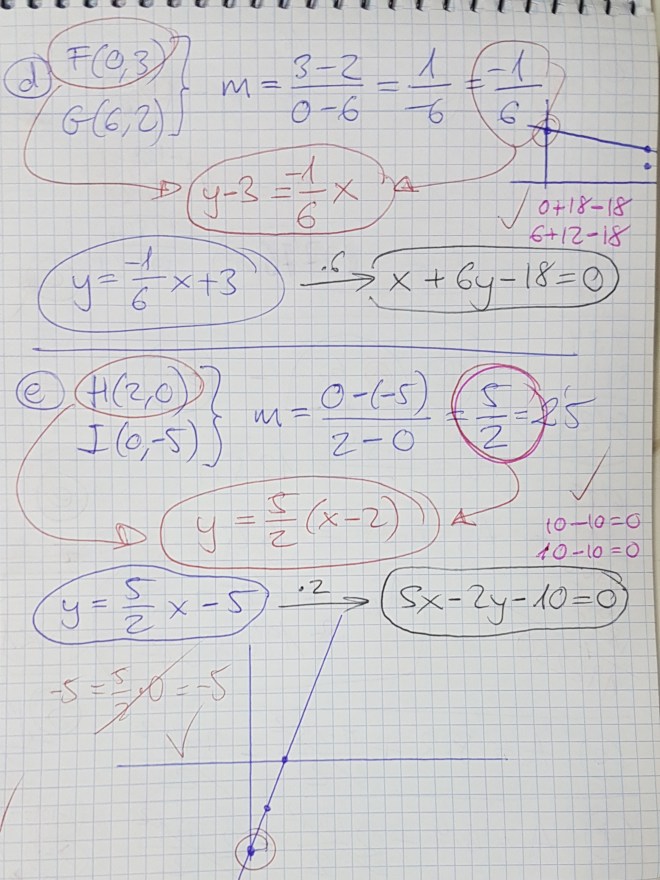 d) F(0,3)
G(6,2)
m = \frac{3-2}{0-6} = \frac{1}{-6} = \frac{-1}{6}
y-3 = \frac{-1}{6} x
✓ 0+18-18
6+12-18
y = \frac{-1}{6} x + 3 \xrightarrow{\cdot 6} x + 6y - 18 = 0
e) H(2,0)
I(0,-5)
m = \frac{0-(-5)}{2-0} = \frac{5}{2} = 2'5
y = \frac{5}{2} (x-2)
✓
10-10=0
10-10=0
y = \frac{5}{2} x - 5 \xrightarrow{\cdot 2} 5x - 2y - 10 = 0
-5 = \frac{5}{2} \cdot 0 = -5
✓